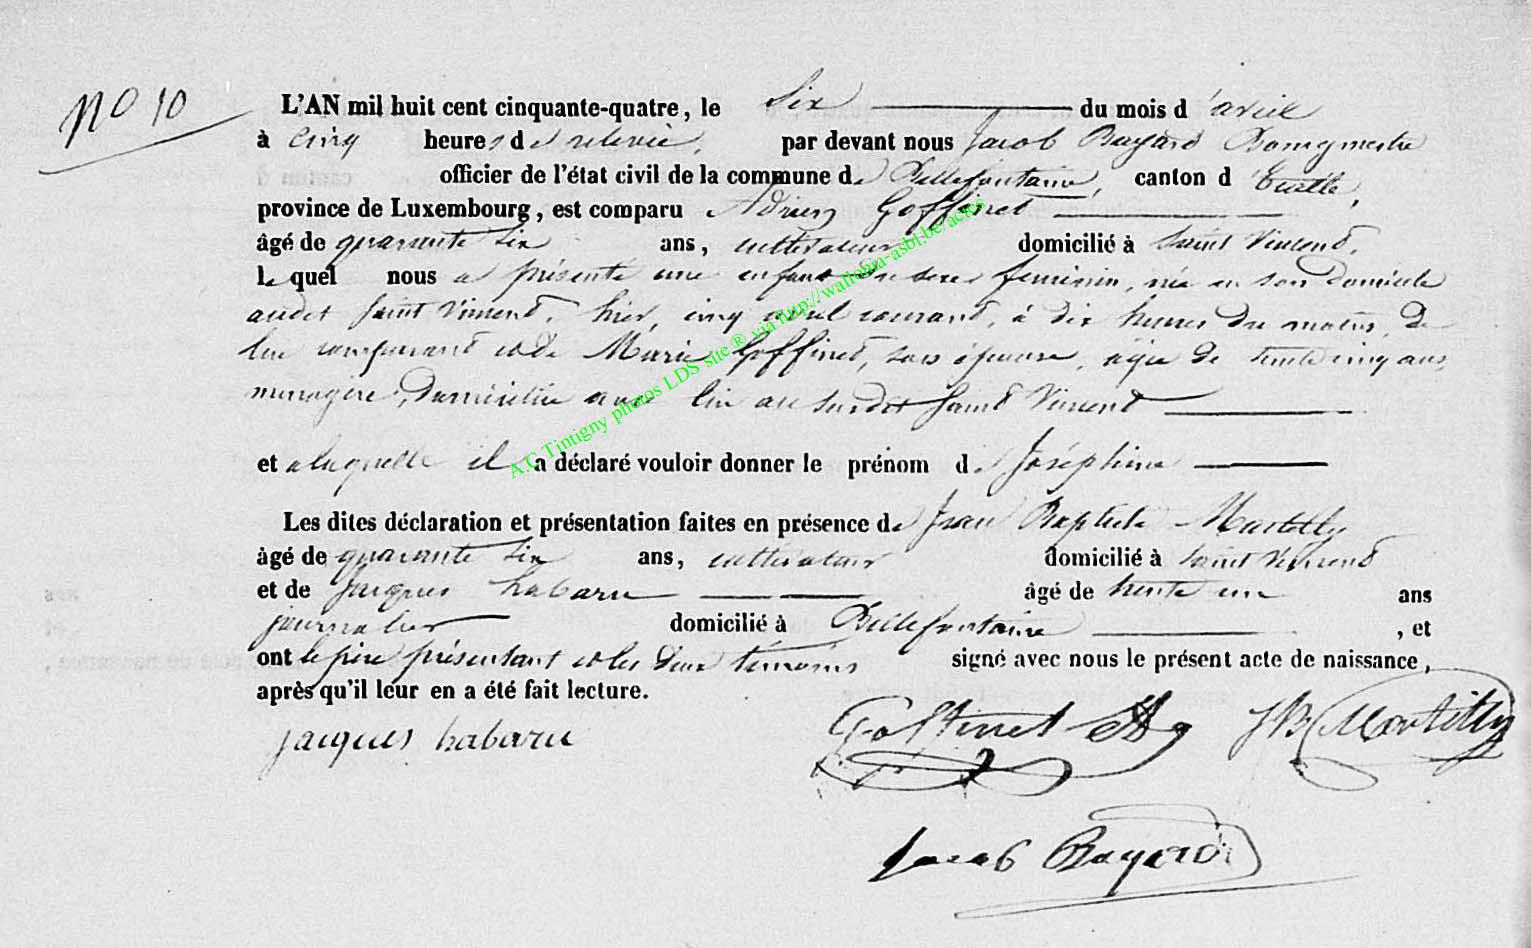 N° 10
L'AN mil huit cent cinquante-quatre, le six du mois d'avril
à cinq heures de relevée, par devant nous Jacob Bayard Bourgmestre
officier de l'état civil de la commune de Bellefontaine, canton d'Etalle,
province de Luxembourg, est comparu Adrien Goffinet
âgé de quarante six ans, cultivateur domicilié à Saint Vincent,
lequel nous a présenté une enfant du sexe féminin, née en son domicile
audit Saint Vincent, hier, cinq avril courant, à dix heures du matin, de
lui comparant et de Marie Goffinet, son épouse, âgée de trente cinq ans,
ménagère, domiciliée avec lui au susdit Saint Vincent
et a laquelle il a déclaré vouloir donner le prénom de Joséphine
Les dites déclaration et présentation faites en présence de Jean Baptiste Martilly
âgé de quarante six ans, cultivateur domicilié à Saint Vincent
et de Jacques habaru âgé de trente un ans
journalier domicilié à Bellefontaine, et
ont le père présentant et les deux témoins signé avec nous le présent acte de naissance,
après qu'il leur en a été fait lecture.
jacques habaru Goffinet JB Martilly
Jacob Bayard
A.G Tintigny photos LDS site ® via http://wallonia-asbl.be/actes